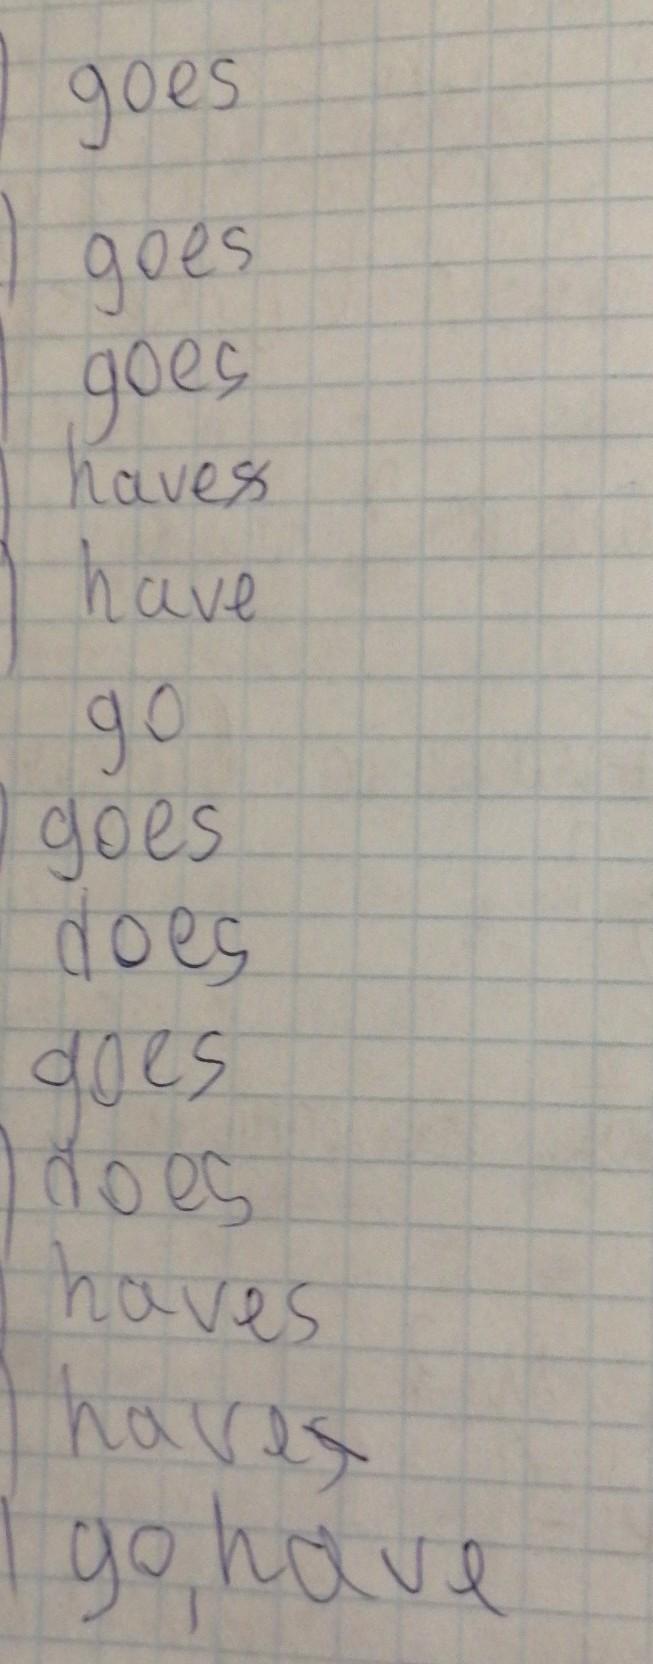 ) goes
) goes
) goes
) haves
) have
go
) goes
does
goes
) does
) haves
) haves
) go, have